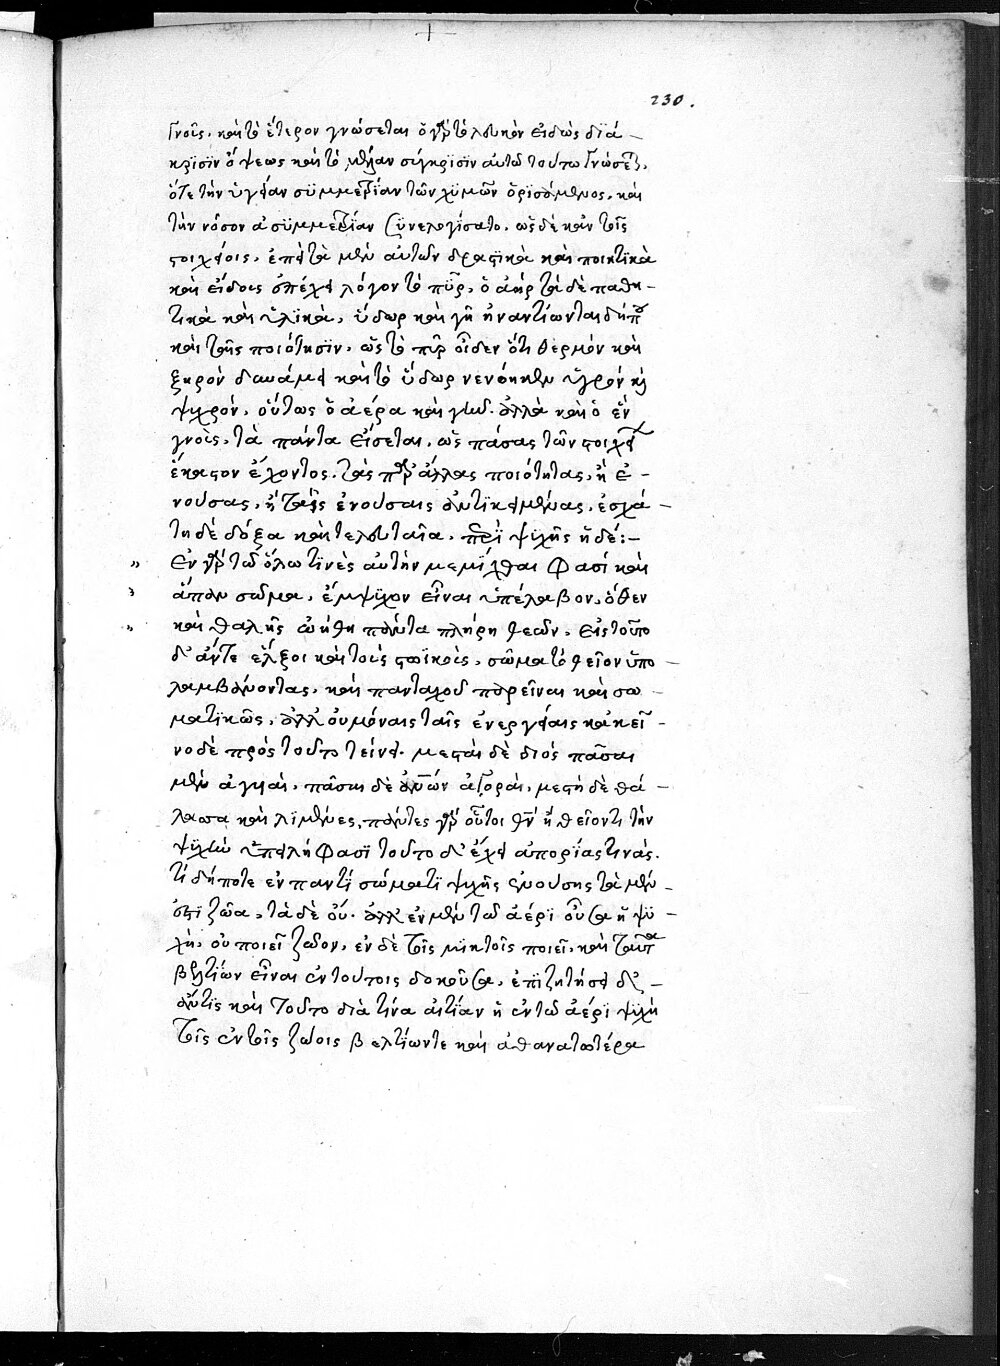 230.
γνοῖς. καὶ τὸ ἕτερον γνώσεται ὁ γὰρ τὸ λευκὸν εἰδὼς διά-
κρισιν ὄψεως καὶ τὸ μέλαν σύγκρισιν αὐτῷ τούτω γνώσεται.
ὅτε τὴν ὑγείαν συμμετρίαν τῶν χυμῶν ὁρισόμενος. καὶ
τὴν νόσον ἀσυμμετρίαν συνελογίσατο. ὡς δὲ κἀν τοῖς
στοιχείοις. ἐπεὶ τὰ μὲν αὐτῶν δραστικὰ καὶ ποιητικὰ
καὶ εἴδους ἐπέχει λόγον τὸ πῦρ. ὁ ἀὴρ τὰ δὲ παθη-
τικὰ καὶ ὑλικὰ, ὕδωρ καὶ γῆ ἠναντίωνται δήπου
καὶ ταῖς ποιότησιν. ὡς τὸ πῦρ οἶδεν ὅτι θερμὸν καὶ
ξηρὸν δυνάμει καὶ τὸ ὕδωρ νενόηκεν ὑγρὸν καὶ
ψυχρόν. οὕτως ὁ ἀέρα καὶ γῆν. ἀλλὰ καὶ ὁ ἓν
γνοὺς. τὰ πάντα εἴσεται. ὡς πάσας τῶν στοιχείων
ἑκάστου ἔχοντος. τὰς παρ' ἄλλας ποιότητας. ἢ ἐ-
νούσας. ἢ ταῖς ἐνούσαις ἀντικειμένας. ἐσχά-
τη δὲ δόξα καὶ τελευταία. περὶ ψυχῆς ἥδε:-
Ἐν γὰρ τῷ ὅλω τινὲς αὐτὴν μεμίχθαι φασί καὶ
ἅπαν σῶμα. ἔμψυχον εἶναι ὑπέλαβον. ὅθεν
καὶ θαλῆς ᾠήθη πάντα πλήρη θεῶν. εἰς τοῦτο
δ' ἄν τε ἕλξοι καὶ τοὺς στωϊκοὺς. σῶμα τὸ θεῖον ὑπο-
λαμβάνοντας. καὶ πανταχοῦ παρεῖναι καὶ σω-
ματικῶς. ἀλλ' οὐ μόναις ταῖς ἐνεργείαις κἀκεῖ-
νο δὲ πρὸς τοῦτο τείνει. μεσταὶ δὲ διὸς πᾶσαι
μὲν ἀγυιαὶ. πᾶσαι δὲ ἀνθρώπων ἀγοραὶ. μεστὴ δὲ θά-
λασσα καὶ λιμένες. πάντες γὰρ οὗτοι θεὸν ἢ θεῖόν τι τὴν
ψυχὴν ὑπειλήφασι τοῦτο δ' ἔχει ἀπορίας τινάς.
τί δήποτε ἐν παντὶ σώματι ψυχῆς ἐνούσης τὰ μέν
ἐστι ζῶα. τὰ δὲ οὔ. ἀλλ' ἐν μὲν τῷ ἀέρι οὖσα ἡ ψυ-
χὴ. οὐ ποιεῖ ζῶον. ἐν δὲ τοῖς μικτοῖς ποιεῖ. καὶ ταῦτα
βελτίων εἶναι ἐν τούτοις δοκοῦσα. ἐπιζητήσει δ'
ἄν τις καὶ τοῦτο διὰ τίνα αἰτίαν ἡ ἐν τῷ ἀέρι ψυχὴ
τῆς ἐν τοῖς ζώοις βελτίων τε καὶ ἀθανατωτέρα